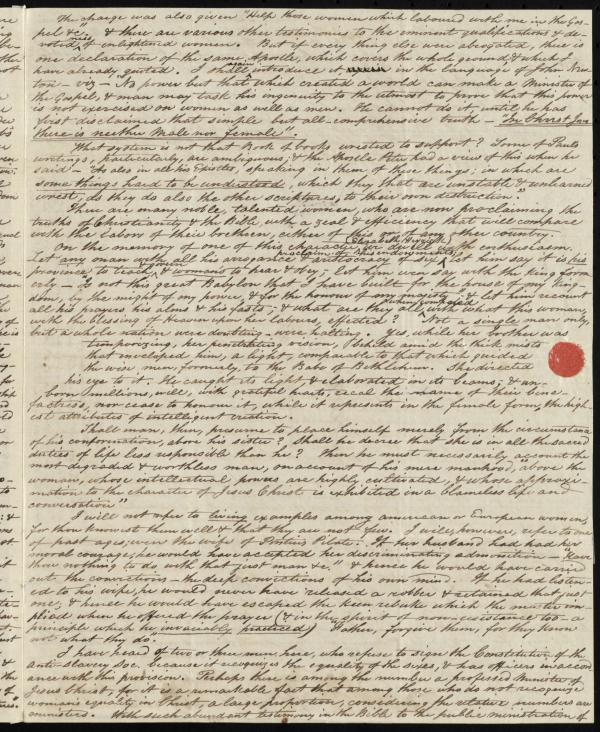 The charge was also given "Help those women which laboured with me in the Gos-
pel &c", & there are various other testimonies to the eminent qualifications & de-
votedness of enlightened women. But if every thing else were abrogated, there is
one declaration of the same Apostle, which covers the whole ground, & which I
have already quoted. I shall again introduce it in the language of John New-
ton – viz – "No power but that which created a world can make a Minister of
the Gospel, & man may task his ingenuity to the utmost to prove that this power
is not exercised on women as well as men. He cannot do it, until he has
first disclaimed that simple but all-comprehensive truth – "In Christ Jesus
there is neither Male nor female".
What system is not that Book of books wrested to support? Some of Pauls
writings, particularly, are ambiguous; & the Apostle Peter had a view of this when he
said – "As also in all his Epistles, speaking in them of these things; in which are
some things hard to be understood, which they that are unstable & unlearned
wrest, as they do also the other scriptures, to their own destruction."
There are many noble, talented women who are now proclaiming the
truths of Christianity & the Bible, with a zeal & efficiency that will compare
with the labors of their brethren, either of this or of any other country.
On the memory of one of this character, Elizabeth Heyrick, I dwell with enthusiasm.
Let any man with all his arrogance & autocracy – say – let him say it is his
province to teach & govern & womans to hear & obey; let him even say with the king form
erly – "Is not this great Babylon that I have built for the house of my king-
dom, by the might of my power, & for the honour of my majesty – & let him recount
all his prayers his alms & his fasts, – & what are they all, when compared with what this woman,
with the blessing of Heaven upon her labors, effected? Not a single man only,
but a whole nation were doubting – were halting – Yes, while her brother was
temporizing, her vision, beheld amid the thick mists
that enveloped him, a light, comparable to that which guided
the wise men, formerly, to the Babe of Bethlehem. She directed
his eye to it. He caught its light, & elaborated in its beams; & un-
born millions, will, with grateful hearts, recal the name of their bene-
factress, nor cease to honour it, while it represents in the female form, the high-
est attributes of intelligent creation.
Shall man, then, presume to place himself merely from the circumstance
of his conformation, above his sister? Shall he decree that she is in all the sacred
duties of life less responsible than he? Then he must necessarily account the
most degraded & worthless man, on account of his mere manhood, above the
woman, whose intellectual powers are highly cultivated, & whose approxi-
mation to the character of Jesus Christ is exhibited in a blameless life and
conversation".
I will not refer to living examples among american or European women,
for thou knowest them well & that they are not few. I will, however, refer to one
of past ages; even the wife of Pontius Pilate. If her husband had had her
moral courage, he would have accepted her discriminating admonition – "Have
thou nothing to do with that just man &c." & hence he would have carried
out the convictions – the deep convictions of his own mind. If he had listen-
ed to his wife, he would never have released a robber & retained that just
one; & hence he would have escaped the keen rebuke which the master im-
plied when he offered the prayer (& in the spirit of non-resistance too – a
principle which he invariably practiced) "Father, forgive them, for they know
not what they do".
I have heard of two or three men here, who refuse to sign the Constitution of the
anti-slavery Soc. because it recognizes the equality of the sexes, & has officers in accord-
ance with this provision. Perhaps there is among the number a professed Minister of
Jesus Christ, for it is a remarkable fact that among those who do not recognize
woman's equality in Christ, a large proportion, considering the relative numbers are
ministers. With such abundant testimony in the Bible to the public ministration of